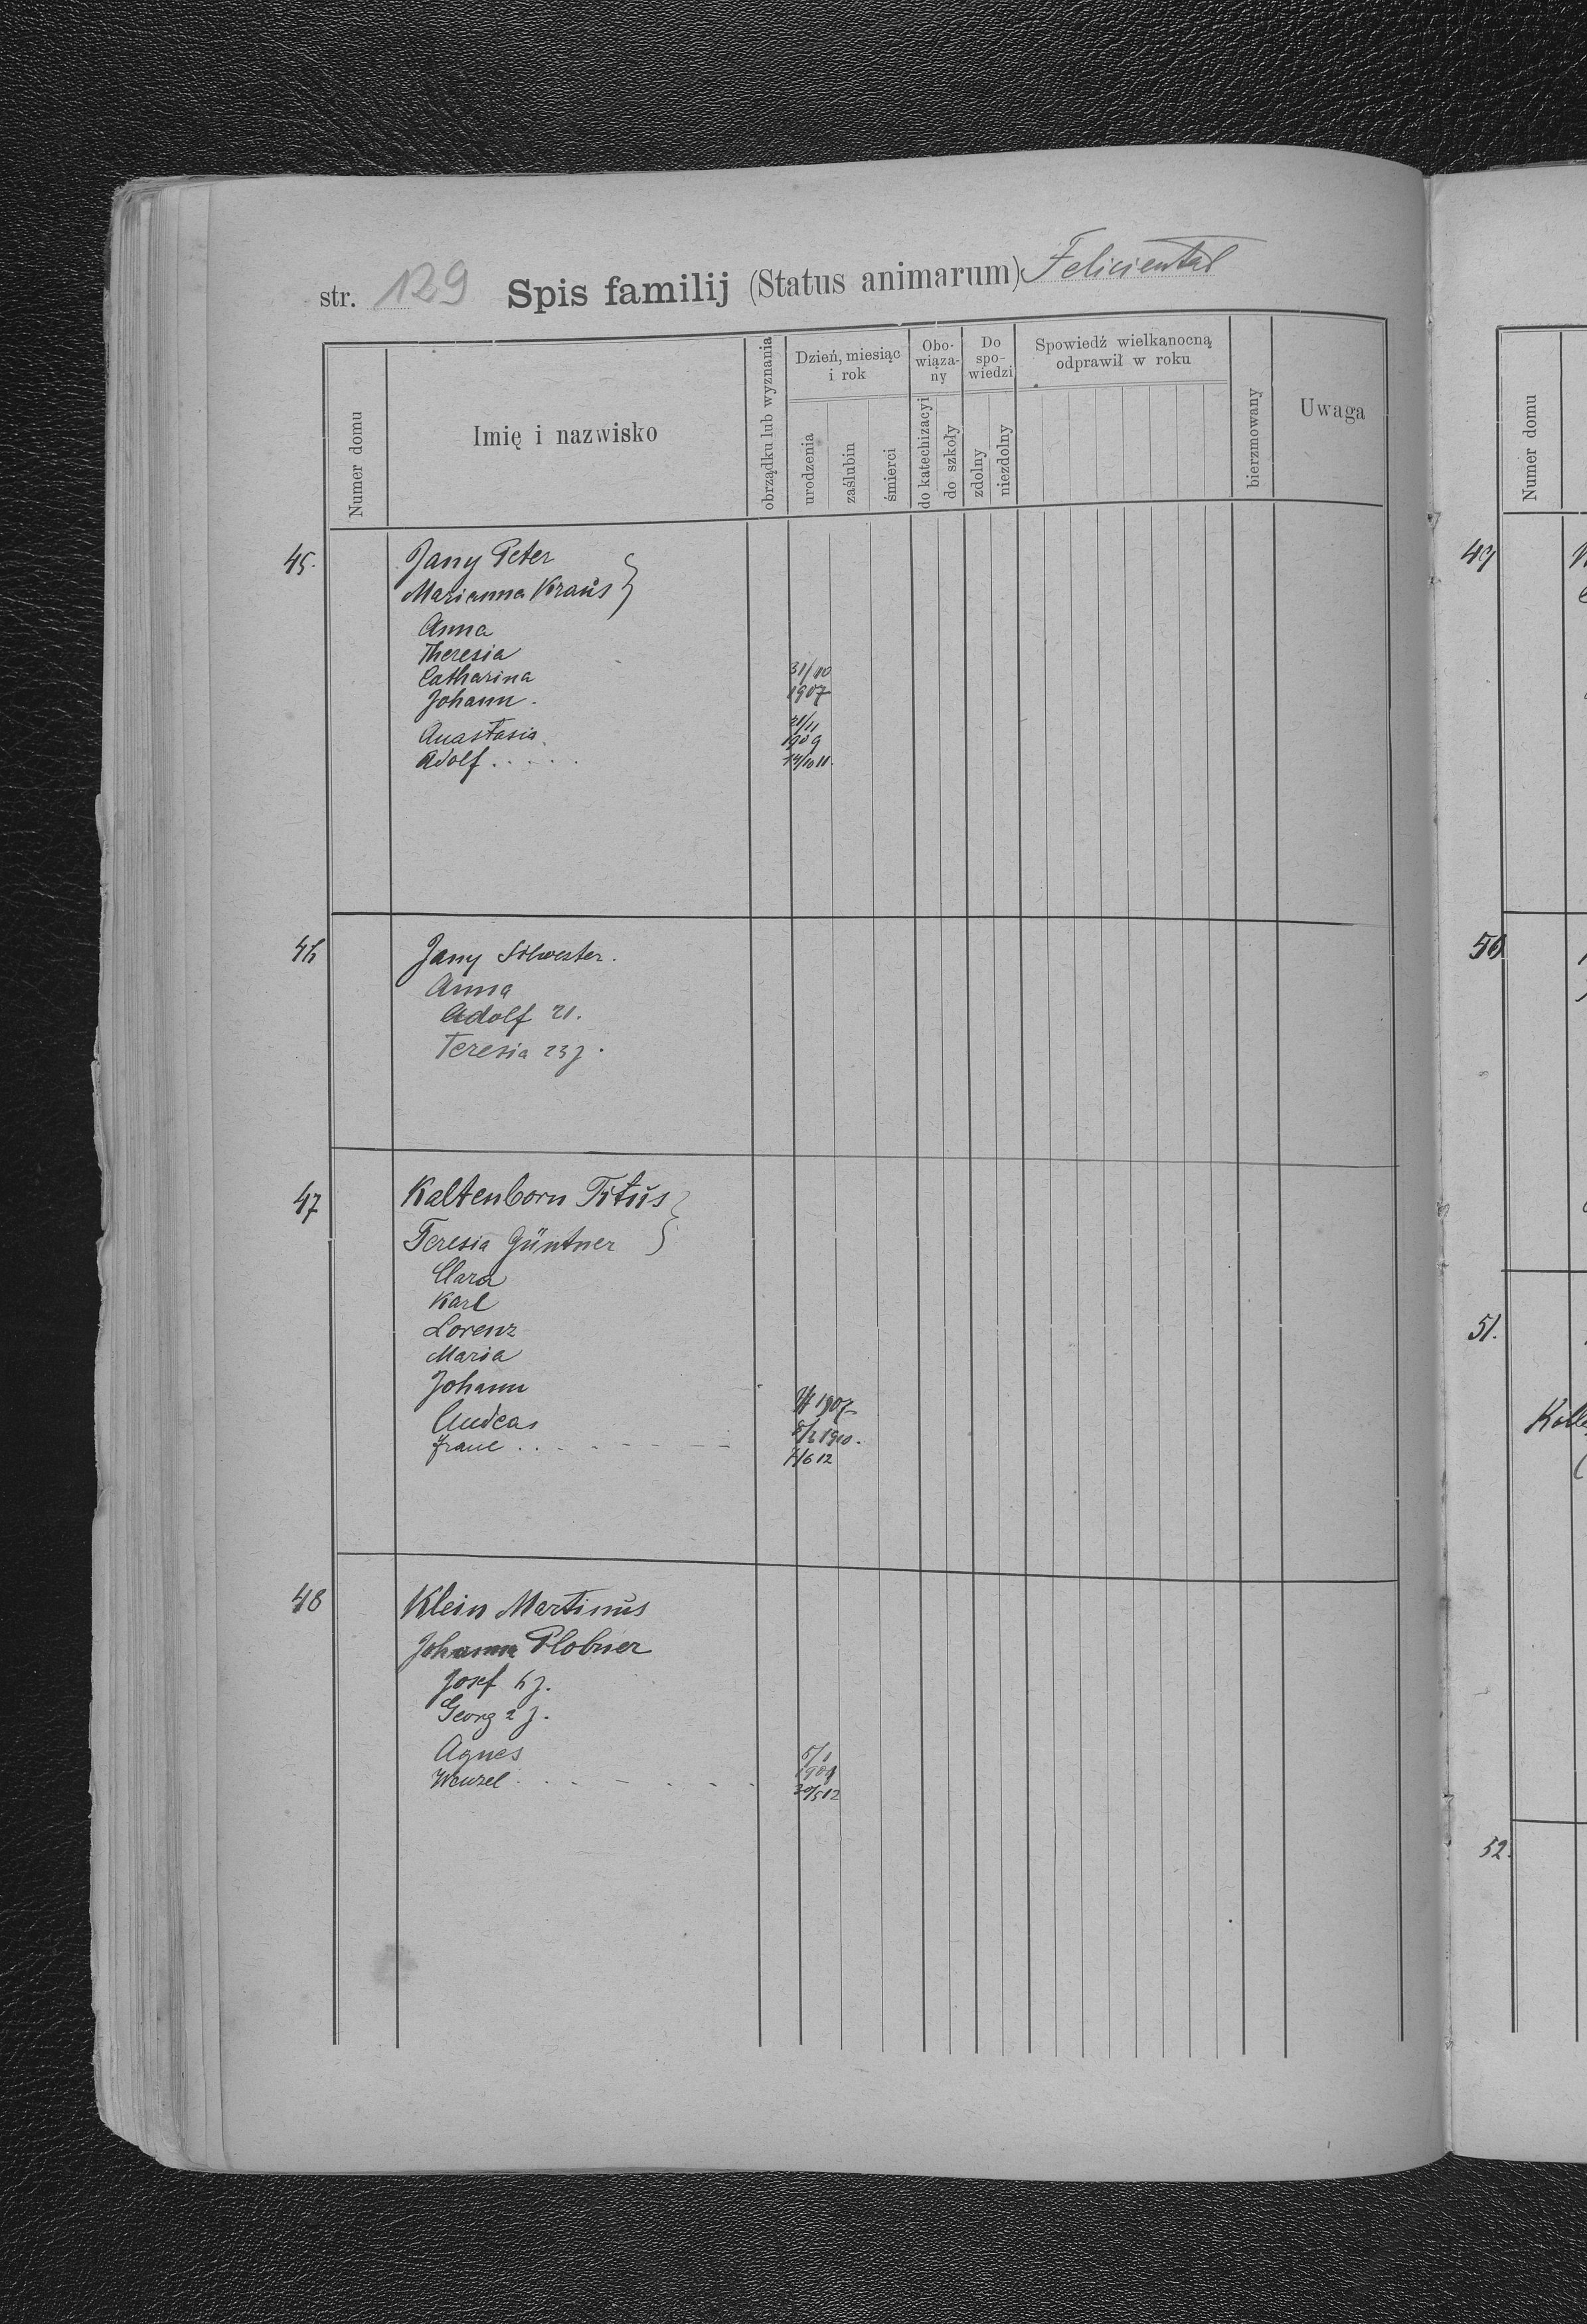 str. 129 Spis familij (Status animarum) Feliciental
Numer domu
Imię i nazwisko
obrządku lub wyznania
Dzień, miesiąc i rok
urodzenia
zaślubin
śmierci
Obo-wiąza-ny
do katechizacyi
do szkoły
Do spo-wiedzi
zdolny
niezdolny
Spowiedź wielkanocną odprawił w roku
bierzmowany
Uwaga
45. Jany Peter
Marianna Kraus
Anna
Theresia
Catharina 31/10
Johann. 1907
Anastasia 21/11 1909
Adolf . . . . . 14/10 11.
46 Jany Silvester.
Anna
Adolf 21.
Teresia 23 j.
47 Kaltenborn Titus
Teresia Güntner
Clara
Karl
Lorenz
Maria
Johann 1907
Andeas 1910.
Franc . . . 6 12
48 Klein Martinus
Johanna Plobner
Josef 6 j.
Georg 2 j.
Agnes 5/1 1909
Wenzel . . . 20/5 12
Numer domu
49
50
51.
Kolle
52.